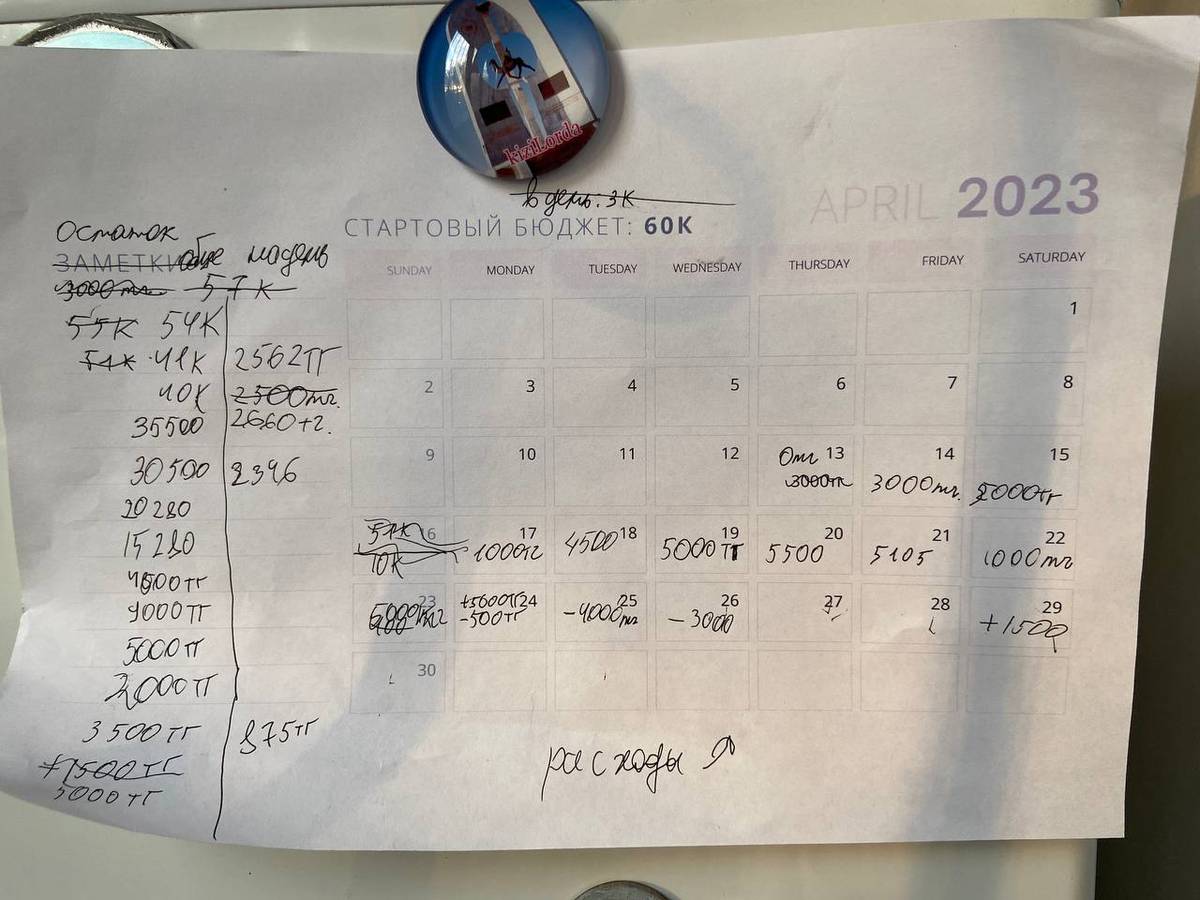 kiziLorda
в день: 3К
СТАРТОВЫЙ БЮДЖЕТ: 60К
APRIL 2023
Остаток
ЗАМЕТКИ
3000тг. 57К
55К 54К
51К 41К 2562ТГ
40К 2500тг.
35500 2660тг.
30500 2346
20280
15280
4500тг
9000тг
5000тг
2000тг
3500тг 875тг
+1500тг
5000тг
SUNDAY MONDAY TUESDAY WEDNESDAY THURSDAY FRIDAY SATURDAY
1
2 3 4 5 6 7 8
9 10 11 12 13 14 15
3000тг 3000тг. 2000тг
51К 16 17 18 19 20 21 22
10К 1000тг 4500 5000тг 5500 5105 1000тг
23 +5600тг 24 25 26 27 28 29
-500тг -4000тг -3000 +1500
30
расходы Я